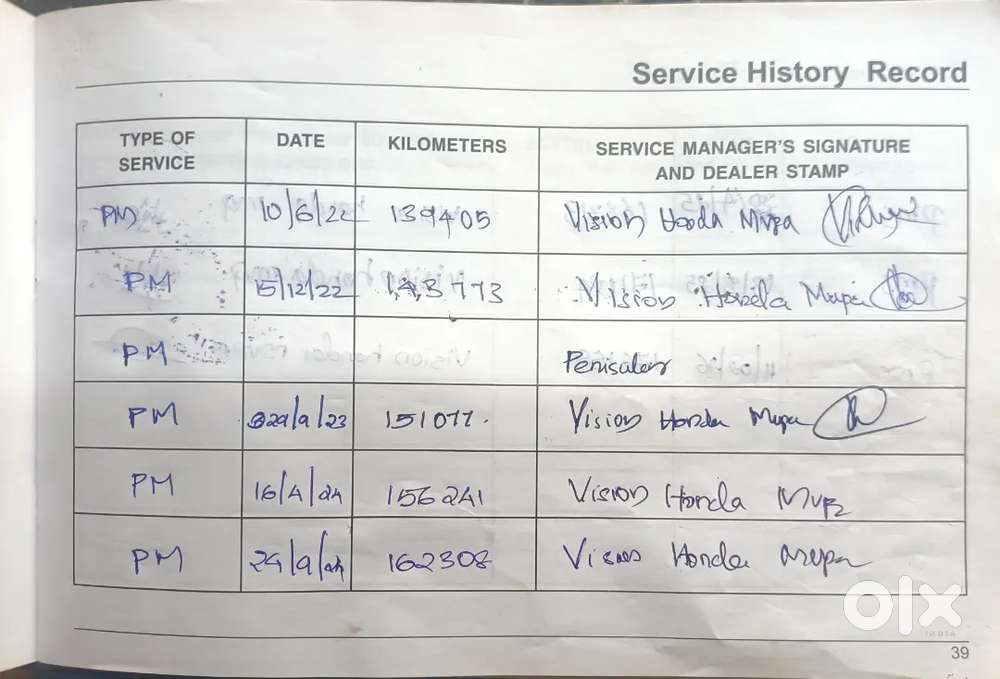 Service History Record
TYPE OF SERVICE DATE KILOMETERS SERVICE MANAGER'S SIGNATURE AND DEALER STAMP
PM 10/6/22 139405 Vision Honda Mvpa
PM 15/12/22 143773 Vision Honda Mvpa
PM
PM 29/9/23 151077. Vision Honda Mvpa
PM 16/4/24 156241 Vision Honda
PM 24/9/24 162308 Honda
olx
INDIA
39